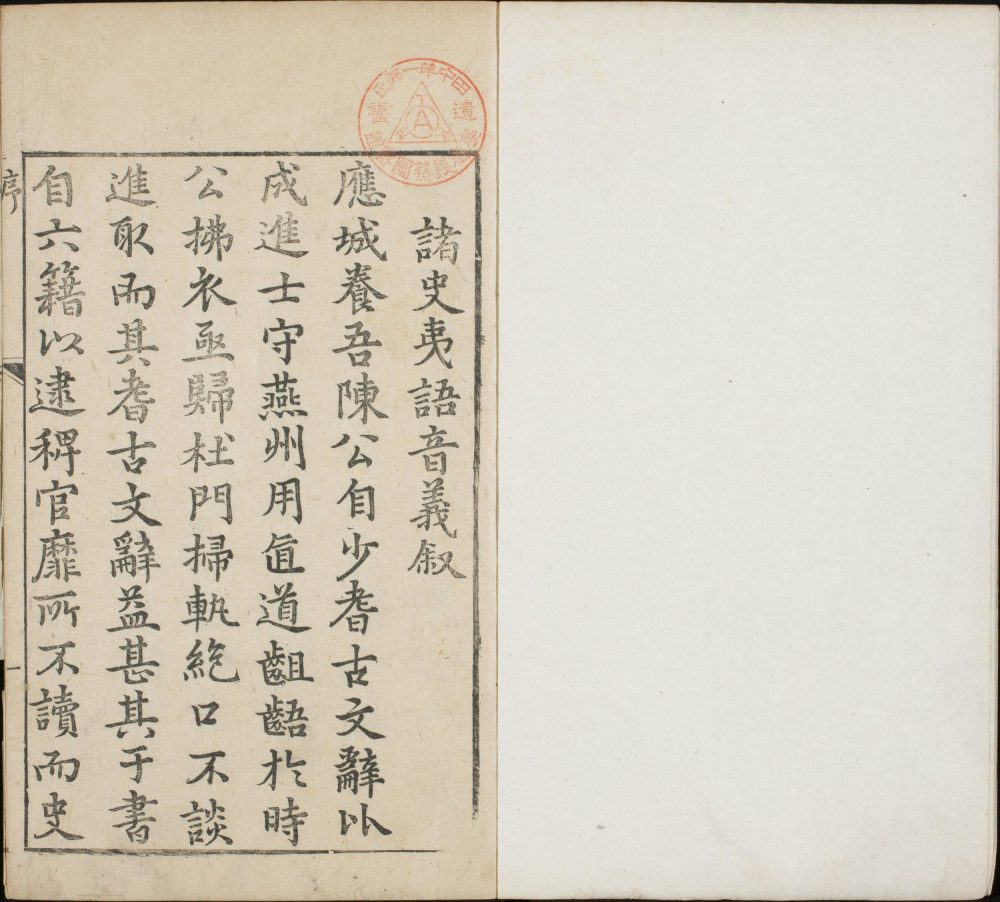 諸史夷語音義叙
應城養吾陳公自少耆古文辭以
成進士守燕州用直道齟齬於時
公拂衣亟歸杜門掃軌絶口不談
進取而其耆古文辭益甚其于書
自六籍以逮稗官靡所不讀而史
序
一
田中華一郎氏遺書